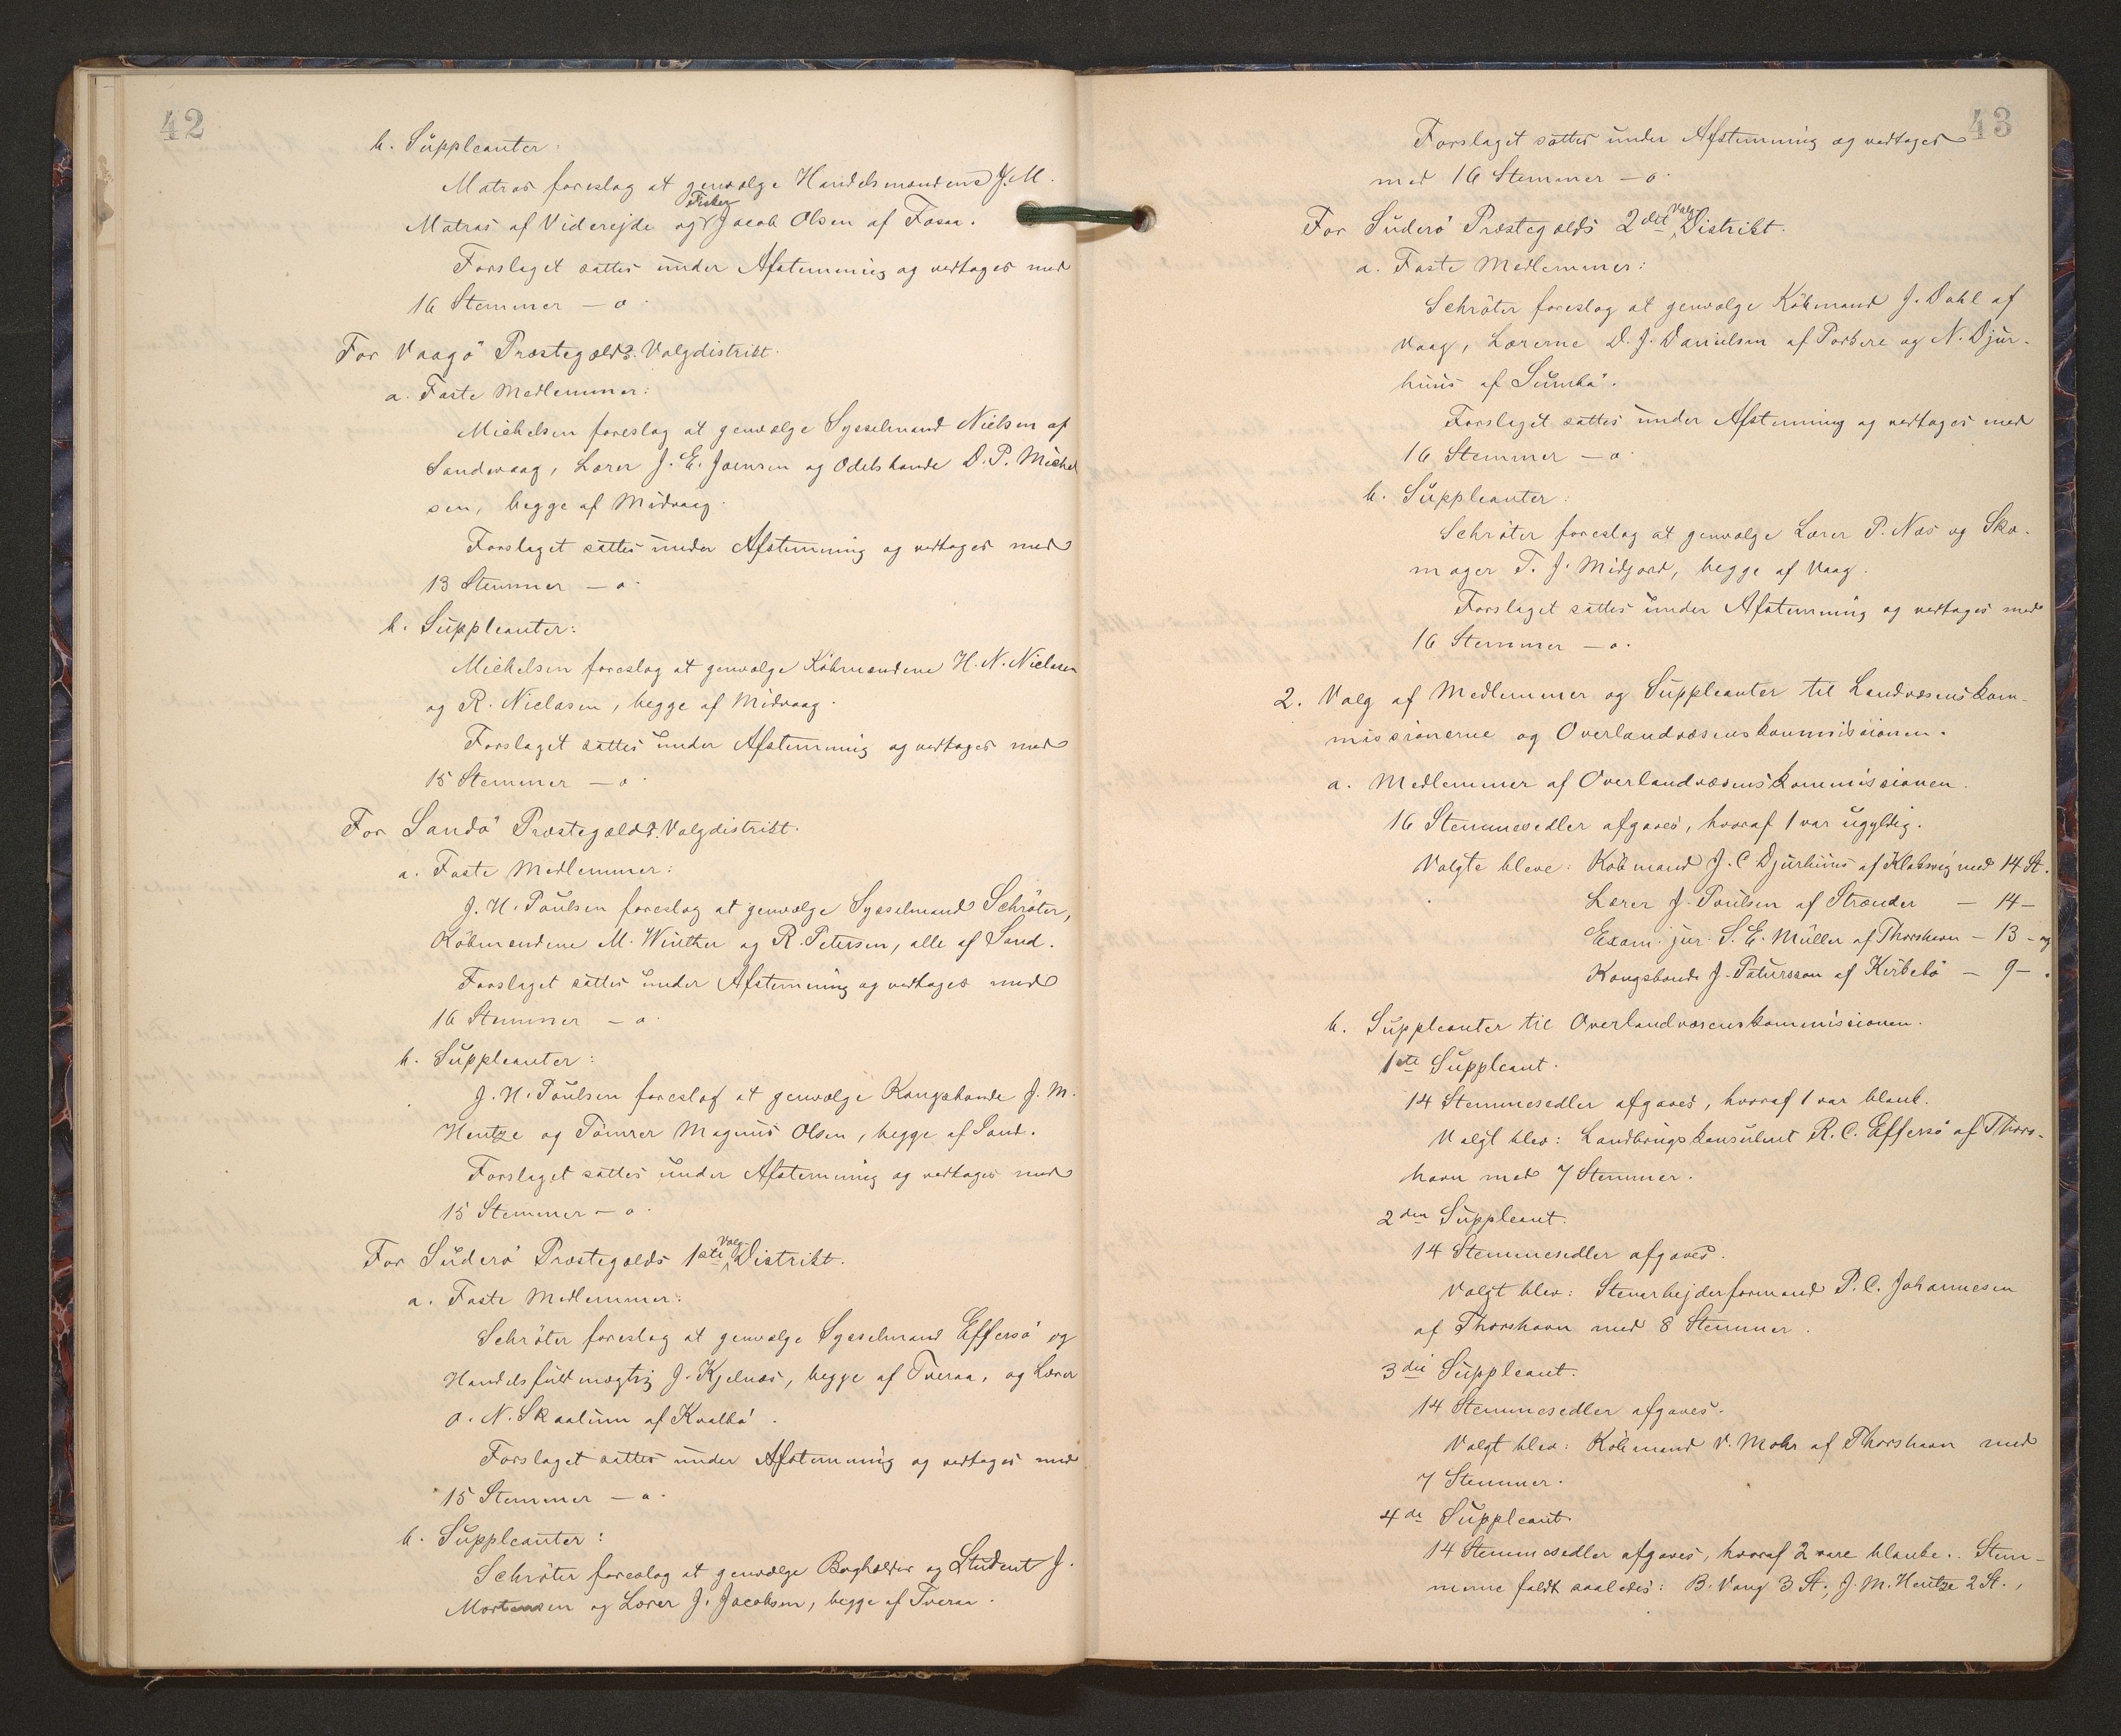 42
b. Suppleanter:
Matras foreslog at genvælge Handelsmændene J. M.
Matras af Viderejde og Fisker Jacob Olsen af Fosaa.
Forslaget sattes under Afstemning og vedtoges med
16 Stemmer – o.
For Vaagø Præstegælds Valgdistrikt.
a. Faste Medlemmer:
Michelsen foreslog at genvælge Sysselmand Nielsen af
Sandevaag, Lærer J. E. Joensen og Odelsbonde D. P. Michel
sen, begge af Midvaag.
Forslaget sattes under Afstemning og vedtoges med
13 Stemmer – o.
b. Suppleanter:
Michelsen foreslog at genvælge Købmændene H. N. Niclasen
og R. Niclasen, begge af Midvaag.
Forslaget sattes under Afstemning og vedtoges med
15 Stemmer – o.
For Sandø Præstegælds Valgdistrikt.
a. Faste Medlemmer:
J. H. Poulsen foreslog at genvælge Sysselmand Schrøter,
Købmændene M. Winther og R. Petersen, alle af Sand.
Forslaget sattes under Afstemning og vedtoges med
16 Stemmer – o.
b. Suppleanter:
J. H. Poulsen foreslog at genvælge Kongsbonde J. M.
Hentze og Tømrer Magnus Olsen, begge af Sand.
Forslaget sattes under Afstemning og vedtoges med
15 Stemmer – o.
For Suderø Præstegælds 1ste Valg-Distrikt.
a. Faste Medlemmer:
Schrøter foreslog at genvælge Sysselmand Effersø og
Handelsfuldmægtig J. Kjelnæs, begge af Tveraa, og Lærer
O. N. Skaalum af Kvalbø.
Forslaget sattes under Afstemning og vedtoges med
15 Stemmer – o.
b. Suppleanter:
Schrøter foreslog at genvælge Bogholder og Student J.
Mortensen og Lærer J. Jacobsen, begge af Tveraa.
43
Forslaget sattes under Afstemning og vedtoges
med 16 Stemmer – o.
For Suderø Præstegælds 2det Valg-Distrikt.
a. Faste Medlemmer:
Schrøter foreslog at genvælge Købmand J. Dahl af
Vaag, Lærerne D. J. Danielsen af Porkere og N. Djur-
huus af Sumbø.
Forslaget sattes under Afstemning og vedtoges med
16 Stemmer – o.
b. Suppleanter:
Schrøter foreslog at genvælge Lærer P. Næs og Sko-
mager T. J. Midjord, begge af Vaag.
Forslaget sattes under Afstemning og vedtoges med
16 Stemmer – o.
2. Valg af Medlemmer og Suppleanter til Landvæsenskom-
missionerne og Overlandvæsenskommissionen.
a. Medlemmer af Overlandvæsenskommissionen.
16 Stemmesedler afgaves, hvoraf 1 var ugyldig.
Valgte bleve: Købmand J. C Djurhuus af Klaksvig med 14 St.
Lærer J. Poulsen af Strænder – 14 –
Exam. jur. S. E. Müller af Thorshavn – 13 – og
Kongsbonde J. Patursson af Kirkebø – 9 – .
b. Suppleanter til Overlandvæsenskommissionen.
1ste Suppleant.
14 Stemmesedler afgaves, hvoraf 1 var blank.
Valgt blev: Landbrugskonsulent R. C. Effersø af Thors-
havn med 7 Stemmer.
2den Suppleant.
14 Stemmesedler afgaves.
Valgt blev: Stenarbejderformand P. C. Johannesen
af Thorshavn med 8 Stemmer.
3die Suppleant.
14 Stemmesedler afgaves.
Valgt blev: Købmand V. Mohr af Thorshavn med
7 Stemmer.
4de Suppleant.
14 Stemmesedler afgaves, hvoraf 2 vare blanke. Stem-
merne faldt saaledes: B. Vang 3 St., J. M. Hentze 2 St.,